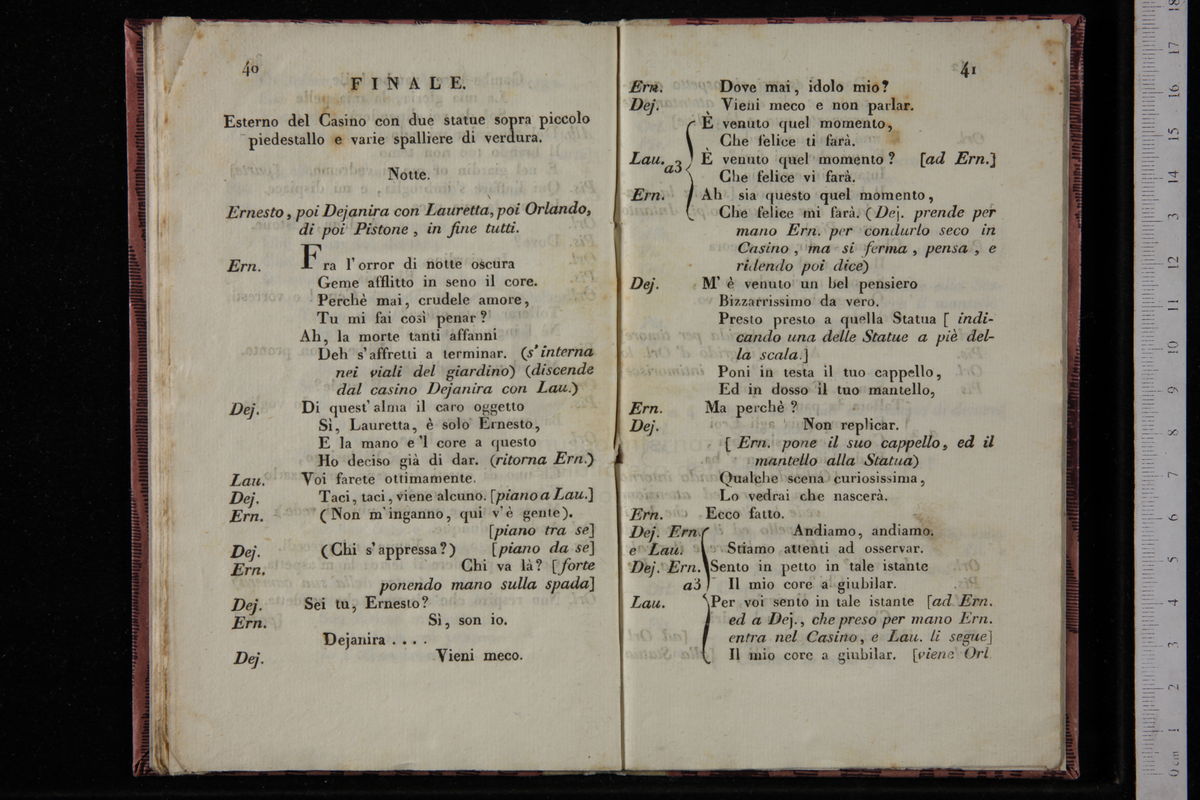 40
FINALE.
Esterno del Casino con due statue sopra piccolo
piedestallo e varie spalliere di verdura.
Notte.
Ernesto, poi Dejanira con Lauretta, poi Orlando,
di poi Pistone, in fine tutti.
Ern. Fra l'orror di notte oscura
Geme afflitto in seno il core.
Perchè mai, crudele amore,
Tu mi fai così penar?
Ah, la morte tanti affanni
Deh s'affretti a terminar. (s'interna
nei viali del giardino) (discende
dal casino Dejanira con Lau.)
Dej. Di quest'alma il caro oggetto
Sì, Lauretta, è solo Ernesto,
E la mano e'l core a questo
Ho deciso già di dar. (ritorna Ern.)
Lau. Voi farete ottimamente.
Dej. Taci, taci, viene alcuno. [piano a Lau.]
Ern. (Non m'inganno, qui v'è gente).
[piano tra se]
Dej. (Chi s'appressa?) [piano da se]
Ern. Chi va là? [forte
ponendo mano sulla spada]
Dej. Sei tu, Ernesto?
Ern. Sì, son io.
Dejanira . . . .
Dej. Vieni meco.
41
Ern. Dove mai, idolo mio?
Dej. Vieni meco e non parlar.
È venuto quel momento,
Che felice ti farà.
Lau. a3 È venuto quel momento? [ad Ern.]
Che felice vi farà.
Ern. Ah sia questo quel momento,
Che felice mi farà. (Dej. prende per
mano Ern. per condurlo seco in
Casino, ma si ferma, pensa, e
ridendo poi dice)
Dej. M'è venuto un bel pensiero
Bizzarrissimo da vero.
Presto presto a quella Statua [indi-
cando una delle Statue a piè del-
la scala.]
Poni in testa il tuo cappello,
Ed in dosso il tuo mantello,
Ern. Ma perchè?
Dej. Non replicar.
[Ern. pone il suo cappello, ed il
mantello alla Statua)
Qualche scena curiosissima,
Lo vedrai che nascerà.
Ern. Ecco fatto.
Dej. Ern. Andiamo, andiamo.
e Lau. Stiamo attenti ad osservar.
Dej. Ern. Sento in petto in tale istante
a3 Il mio core a giubilar.
Lau. Per voi sento in tale istante [ad Ern.
ed a Dej., che preso per mano Ern.
entra nel Casino, e Lau. li segue]
Il mio core a giubilar. [viene Orl.
0 cm 1 2 3 4 5 6 7 8 9 10 11 12 13 14 15 16 17 18